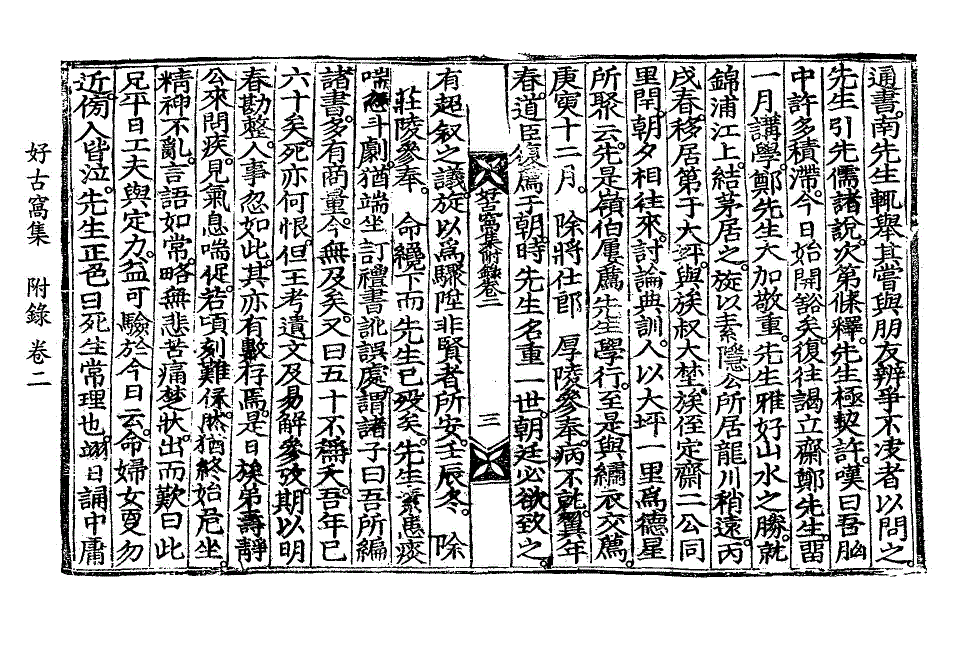 通書南先生輒舉其嘗與朋友辨爭不決者以問之
先生引先儒諸說次第條釋先生極契許嘆曰吾胸
中許多積滯今日始開豁矣復往謁立齋鄭先生留
一月講學鄭先生大加敬重先生雅好山水之勝就
錦浦江上結茅居之旋以素隱公所居龍川稍遠丙
戌春移居第于大坪與族叔大埜族侄定齋二公同
里閈朝夕相往來討論典訓人以大坪一里爲德星
所聚云先是嶺伯屢薦先生學行至是與繡衣交薦
庚寅十二月 除將仕郎 厚陵參奉病不就翼年
春道臣復薦于朝時先生名重一世朝廷必欲致之
好古窩集附錄卷二
三
有超敘之議旋以爲驟陞非賢者所安壬辰冬 除
莊陵參奉 命纔下而先生已歿矣先生素患痰
喘 斗劇猶端坐訂禮書訛誤處謂諸子曰吾所編
諸書多有商量今無及矣又曰五十不稱夭吾年已
六十矣死亦何恨但王考遺文及易解參攷期以明
春勘整人事忽如此其亦有數存焉是日族弟壽靜
公來問疾見氣息喘促若頃刻難保然猶終始危坐
精神不亂言語如常略無悲苦痛楚狀出而歎曰此
兄平日工夫與定力益可驗於今日云命婦女更勿
近傍人皆泣先生正色曰死生常理也翊日誦中庸
好古窩集 附錄 卷二